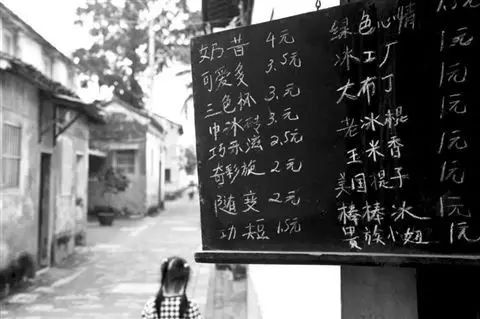 奶昔 4元
可爱多 3.5元
三色杯 3.元
中冰砖 3.元
巧乐滋 2.5元
奇彩旋 2元
随变 2元
功 1.5元
绿色心情 1.5元
冰工厂 1元
大布丁 1元
老冰棍 1元
玉米香 1元
美国棍子 1元
棒棒冰 1元
贵族小姐 1元